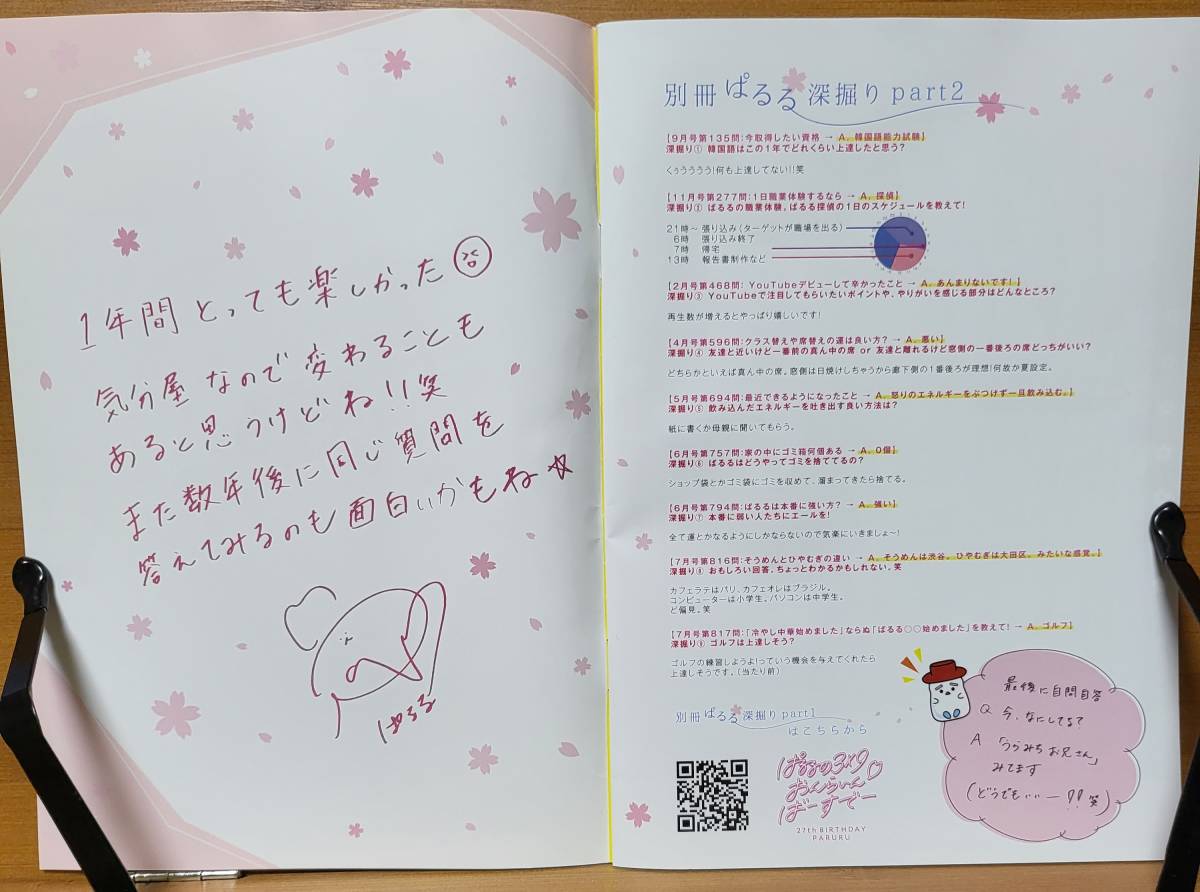 1年間とっても楽しかった
気分屋なので変わることも
あると思うけどね!!笑
また数年後に同じ質問を
答えてみるのも面白いかもね☆
ぱるる
別冊ぱるる深掘り part2
【9月号第135問:今取得したい資格 → A. 韓国語能力試験】
深掘り① 韓国語はこの1年でどれくらい上達したと思う?
くぅうううう!何も上達してない!!笑
【11月号第277問:1日職業体験するなら → A. 探偵】
深掘り② ぱるるの職業体験。ぱるる探偵の1日のスケジュールを教えて!
21時~ 張り込み(ターゲットが職場を出る)
6時 張り込み終了
7時 帰宅
13時 報告書制作など
【2月号第468問: YouTubeデビューして辛かったこと → A. あんまりないです!】
深掘り③ YouTubeで注目してもらいたいポイントや、やりがいを感じる部分はどんなところ?
再生数が増えるとやっぱり嬉しいです!
【4月号第596問:クラス替えや席替えの運は良い方? → A. 悪い】
深掘り④ 友達と近いけど一番前の真ん中の席 or 友達と離れるけど窓側の一番後ろの席どっちがいい?
どちらかといえば真ん中の席。窓側は日焼けしちゃうから廊下側の1番後ろが理想!何故か夏設定。
【5月号第694問:最近できるようになったこと → A. 怒りのエネルギーをぶつけず一旦飲み込む。】
深掘り⑤ 飲み込んだエネルギーを吐き出す良い方法は?
紙に書くか母親に聞いてもらう。
【6月号第757問:家の中にゴミ箱何個ある → A. 0個】
深掘り⑥ ぱるるはどうやってゴミを捨ててるの?
ショップ袋とかゴミ袋にゴミを収めて、溜まってきたら捨てる。
【6月号第794問:ぱるるは本番に強い方? → A. 強い】
深掘り⑦ 本番に弱い人たちにエールを!
全て運とかなるようにしかならないので気楽にいきましょ~!
【7月号第816問:そうめんとひやむぎの違い → A. そうめんは渋谷。ひやむぎは大田区。みたいな感覚。】
深掘り⑧ おもしろい回答。ちょっとわかるかもしれない。笑
カフェラテはパリ、カフェオレはブラジル。
コンピューターは小学生。パソコンは中学生。
ど偏見。笑
【7月号第817問:「冷やし中華始めました」ならぬ「ぱるる○○始めました」を教えて! → A. ゴルフ】
深掘り⑨ ゴルフは上達しそう?
ゴルフの練習しようよ!っていう機会を与えてくれたら
上達しそうです。(当たり前)
最後に自問自答
Q 今、なにしてる?
A 「うらみちお兄さん」
みてます
(どうでもいいー!!笑)
別冊ぱるる深掘り part1
はこちらから
ぱるるの3×9
おんらいん
ばーすでー
27th BIRTHDAY
PARURU